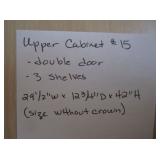 Upper Cabinet #15
- double door
- 3 shelves
29 1/2" W x 12 3/4" D x 42" H
(size without crown)